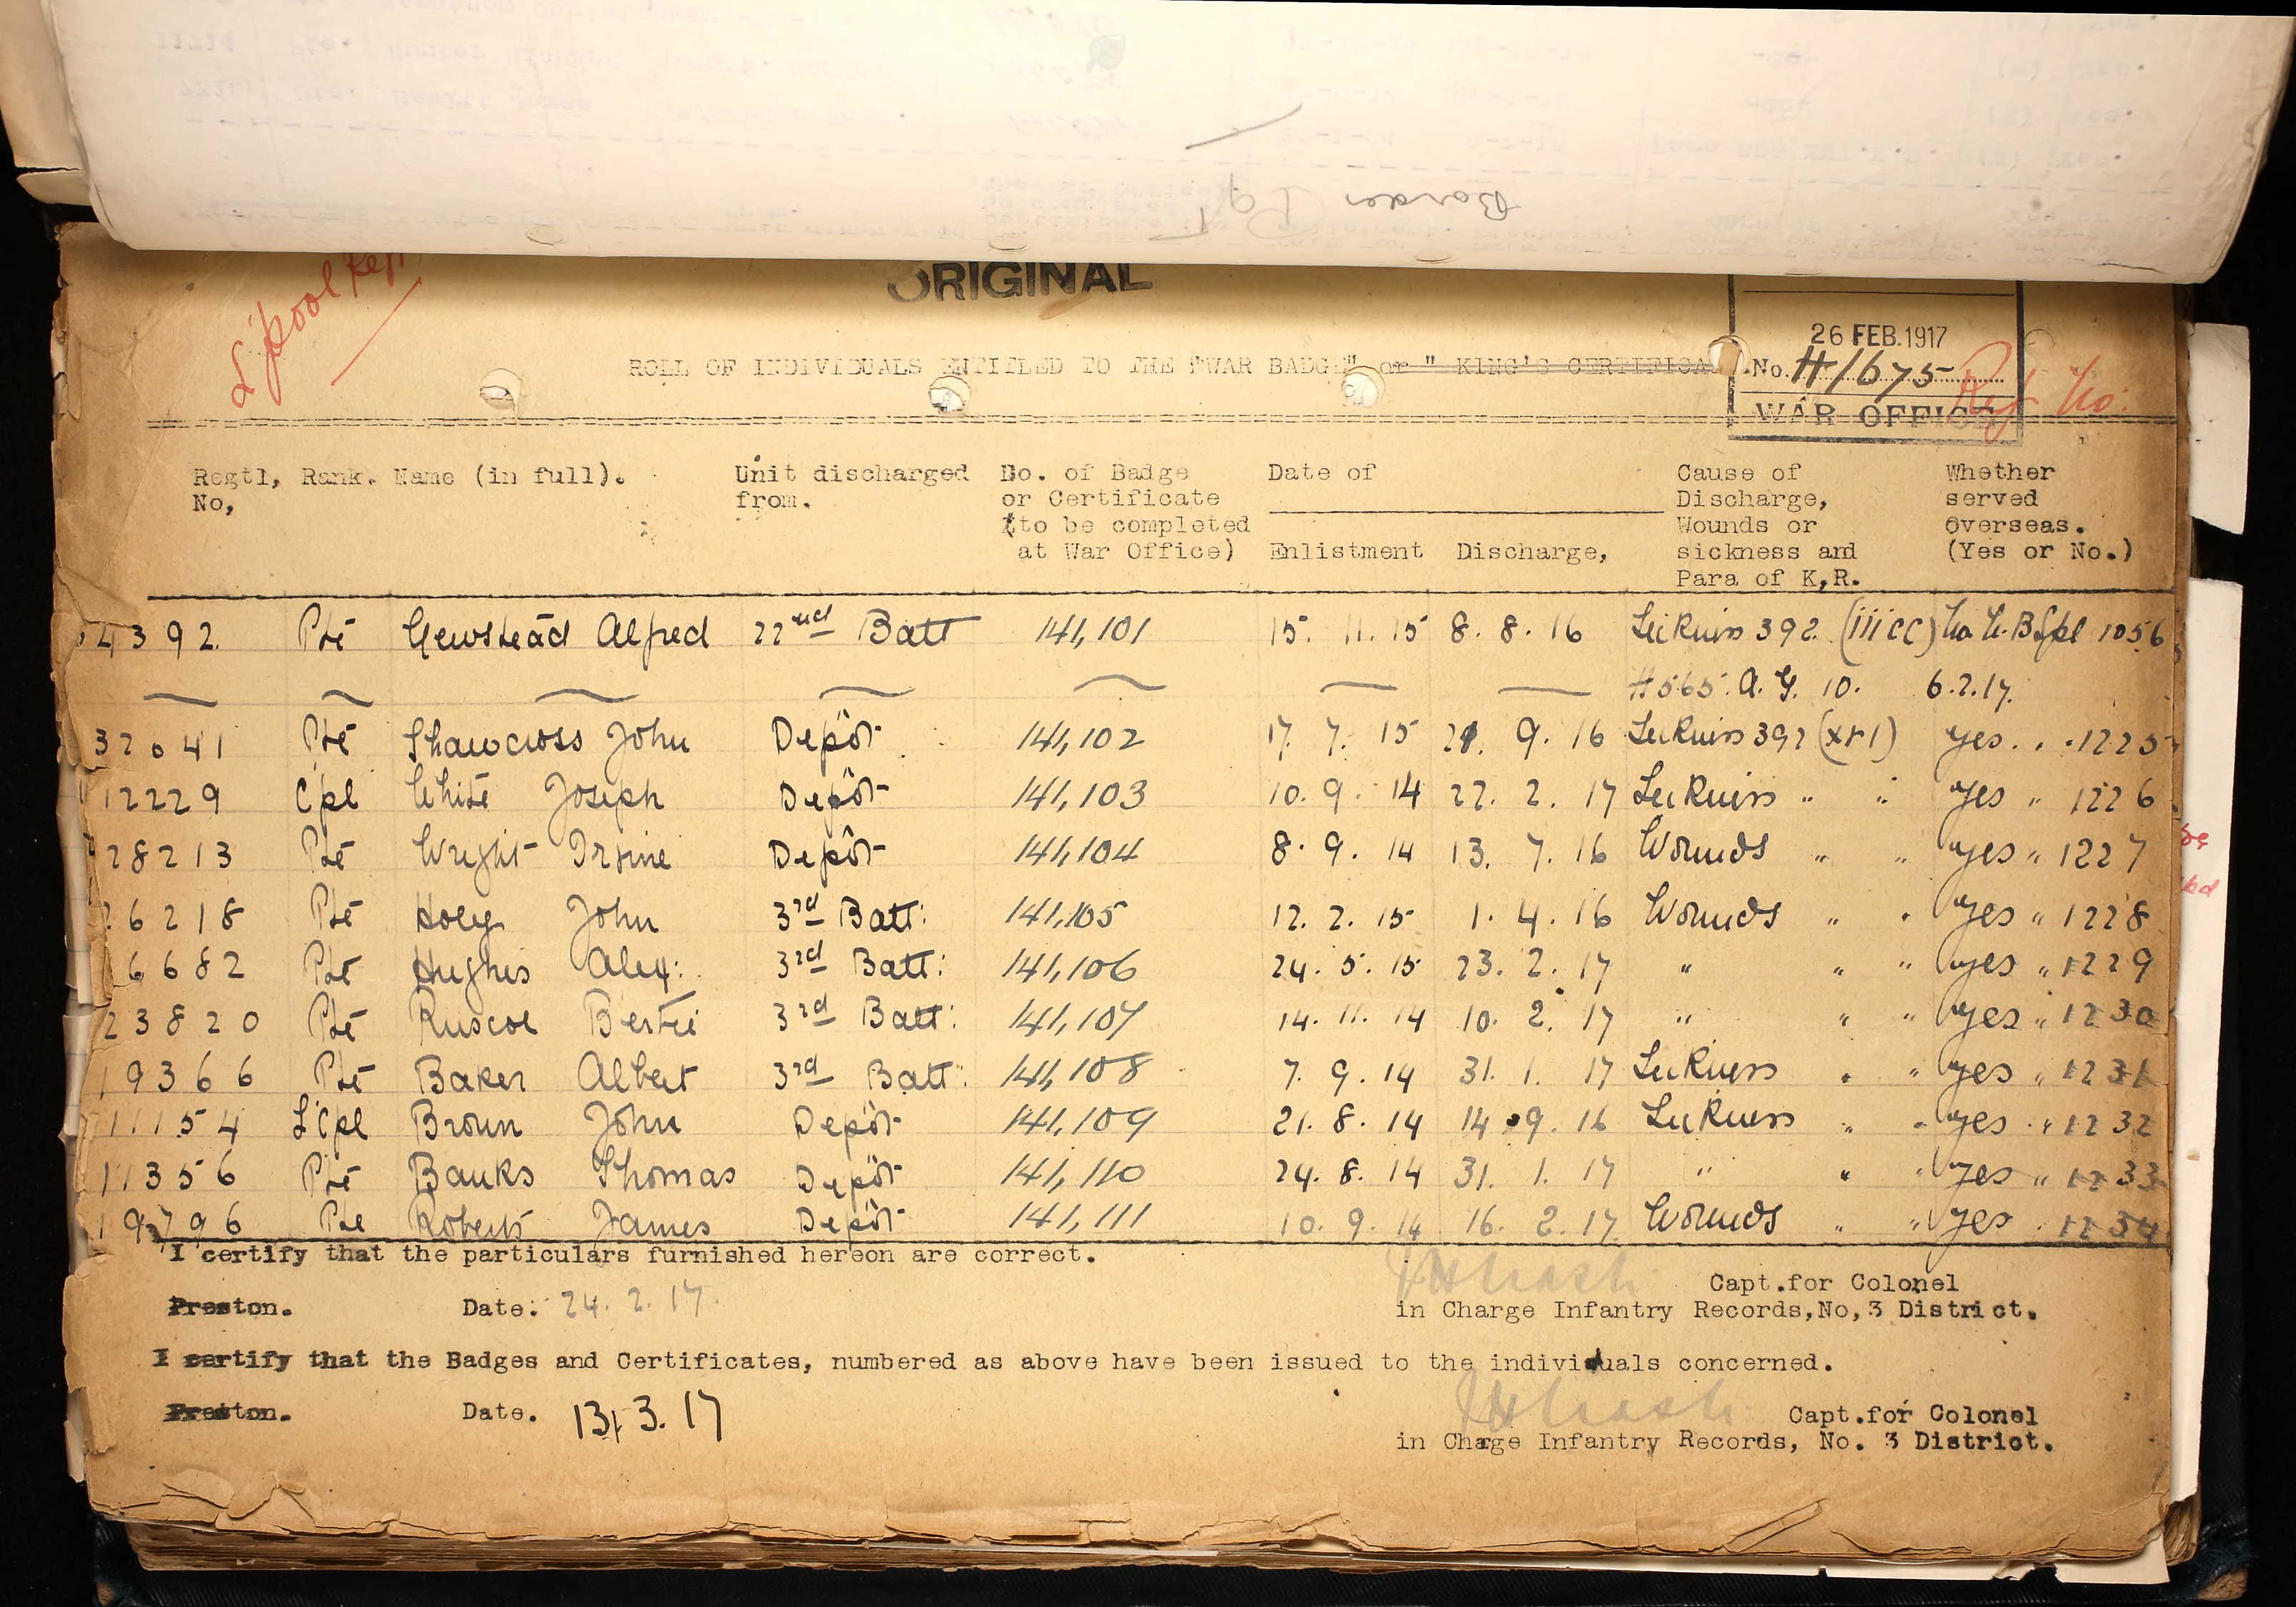 Border Rgt
L'pool Regt
ORIGINAL
26 FEB. 1917
ROLL OF INDIVIDUALS ENTITLED TO THE "WAR BADGE" or " KING'S CERTIFICA
No. H/675
Ref No.
WAR OFFICE
Regtl, Rank. Name (in full). Unit discharged No. of Badge Date of Cause of Whether
No, from. or Certificate Discharge, served
(to be completed Wounds or overseas.
at War Office) Enlistment Discharge, sickness and (Yes or No.)
Para of K,R.
4392 Pte Alfred 22nd Batt 141,101 15. 11. 15 8. 8. 16 Sickness 392 (iii cc) No 1056
H 565. A. G. 10. 6.2.17.
32641 Pte Shawcross John Depôt 141,102 17. 7. 15 21. 9. 16 Sickness 392 (xvi) yes . . 1225
12229 Cpl White Joseph Depôt 141,103 10. 9. 14 22. 2. 17 Sickness " " yes " 1226
28213 Pte Wright Depôt 141,104 8. 9. 14 13. 7. 16 Wounds " " yes " 1227
26218 Pte Hoey John 3rd Batt: 141,105 12. 2. 15 1. 4. 16 Wounds " " yes " 1228
6682 Pte Hughes Alex: 3rd Batt: 141,106 24. 5. 15 23. 2. 17 " " " yes " 1229
23820 Pte Ruscoe Bertie 3rd Batt: 141,107 14. 11. 14 10. 2. 17 " " " yes " 1230
19366 Pte Baker Albert 3rd Batt: 141,108 7. 9. 14 31. 1. 17 Sickness " " yes " 1231
11154 L'Cpl Brown John Depôt 141,109 21. 8. 14 14. 9. 16 Sickness " " yes " 1232
11356 Pte Banks Thomas Depôt 141,110 24. 8. 14 31. 1. 17 " " " yes " 1233
19796 Pte Roberts James Depôt 141,111 10. 9. 14 16. 2. 17 Wounds " " yes . 1234
I certify that the particulars furnished hereon are correct.
Capt.for Colonel
Preston. Date. 24. 2. 17. in Charge Infantry Records,No,3 District.
I certify that the Badges and Certificates, numbered as above have been issued to the individuals concerned.
Preston. Date. 13. 3. 17 Capt.for Colonel
in Charge Infantry Records, No. 3 District.